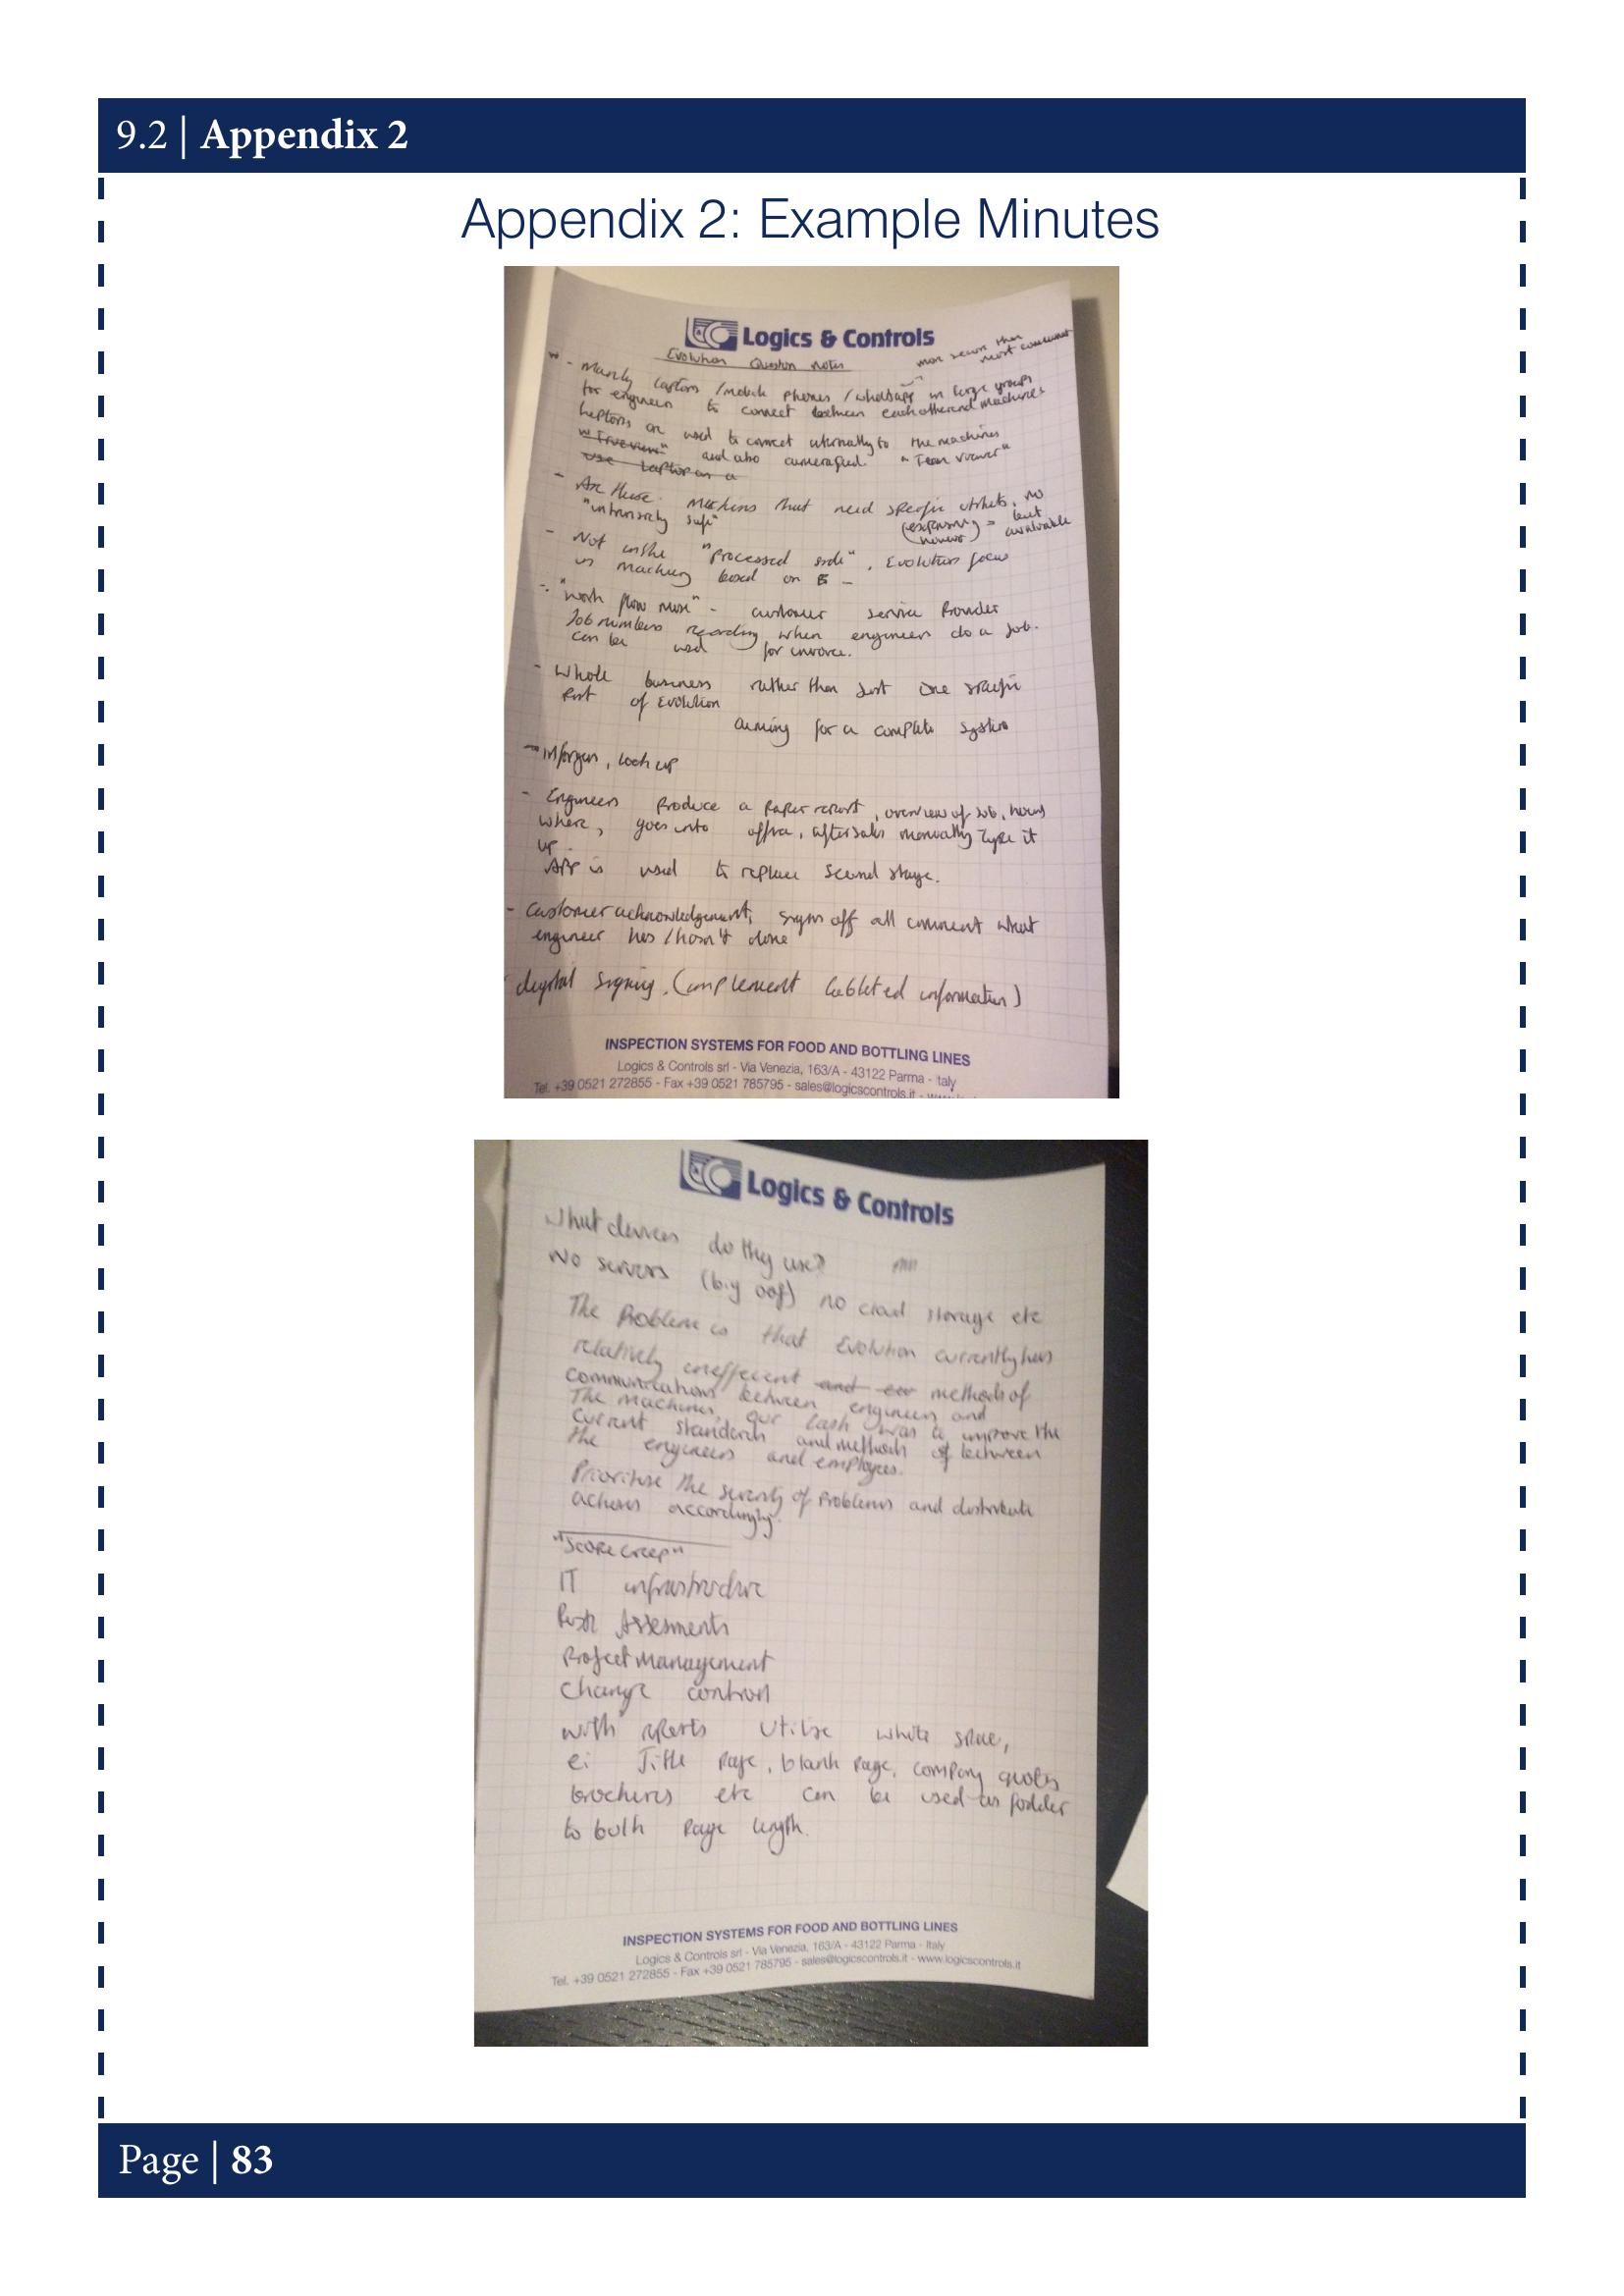 9.2 | Appendix 2
Appendix 2: Example Minutes
Logics & Controls
Evolution Question notes
more secure than
most consumer
- Mainly laptops / mobile phones / whatsapp in large groups
for engineers to connect between each other and machines
laptops are used to connect externally to the machines
and also "Team viewer"
use laptop on a
- Are these machines that need specific utilities, no
"intrinsicly safe" (expensive) = but
available
- Not in the "processed side", Evolution focus
on machinery based on
- "work flow max" - customer service Provider
Job numbers recording when engineers do a job.
can be used for invoice.
- Whole business rather than just one specific
Part of Evolution
aiming for a complete system
look up
- Engineers Produce a Paper report, overview of job, hours
where, goes into office, aftersales manually type it
up.
APP is used to replace second stage.
- Customer acknowledgement, sign off all comment what
engineer has / hasn't done
digital signing. (implement information)
INSPECTION SYSTEMS FOR FOOD AND BOTTLING LINES
Logics & Controls srl - Via Venezia, 163/A - 43122 Parma - Italy
Tel. +39 0521 272855 - Fax +39 0521 785795 - sales@logicscontrols.it -
Logics & Controls
What devices do they use?
No servers (big oof) no cloud storage etc
The Problem is that Evolution currently has
relatively ineffecent and methods of
communications between engineers and
The machines, our task was to improve the
current standards and methods of between
the engineers and employees.
Prioritise the severity of Problems and distribute
actions accordingly.
"Scope creep"
IT infrastructure
Risk Assesments
Project Management
Change control
with reports utilise white space,
ei Title Page, blank Page, company quotes
brochures etc can be used as fodder
to bulk Page length.
INSPECTION SYSTEMS FOR FOOD AND BOTTLING LINES
Logics & Controls srl - Via Venezia, 163/A - 43122 Parma - Italy
Tel. +39 0521 272855 - Fax +39 0521 785795 - sales@logicscontrols.it - www.logicscontrols.it
Page | 83